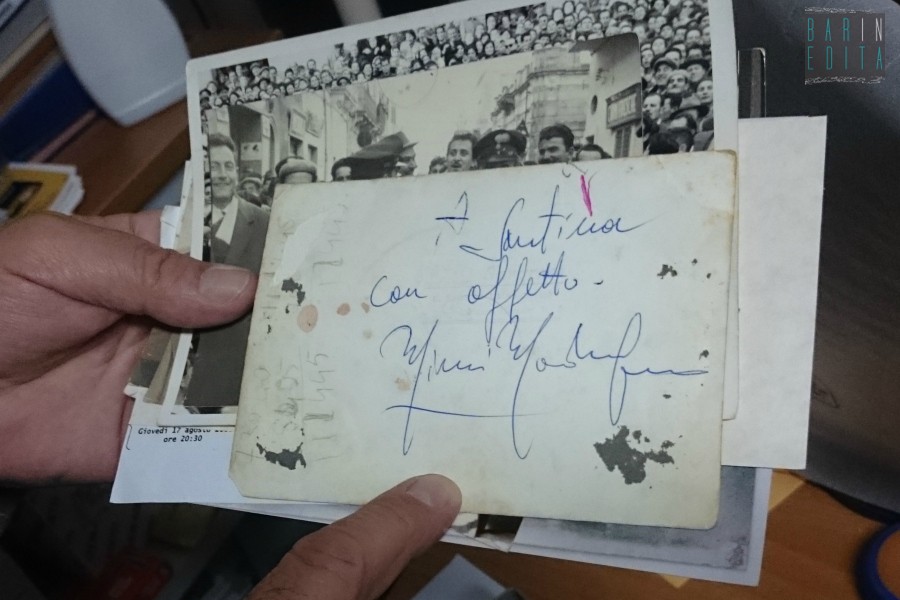 BARIN
EDITA
A Santina
con affetto.
Mimì Modugno
Giovedì 17 agosto
ore 20:30